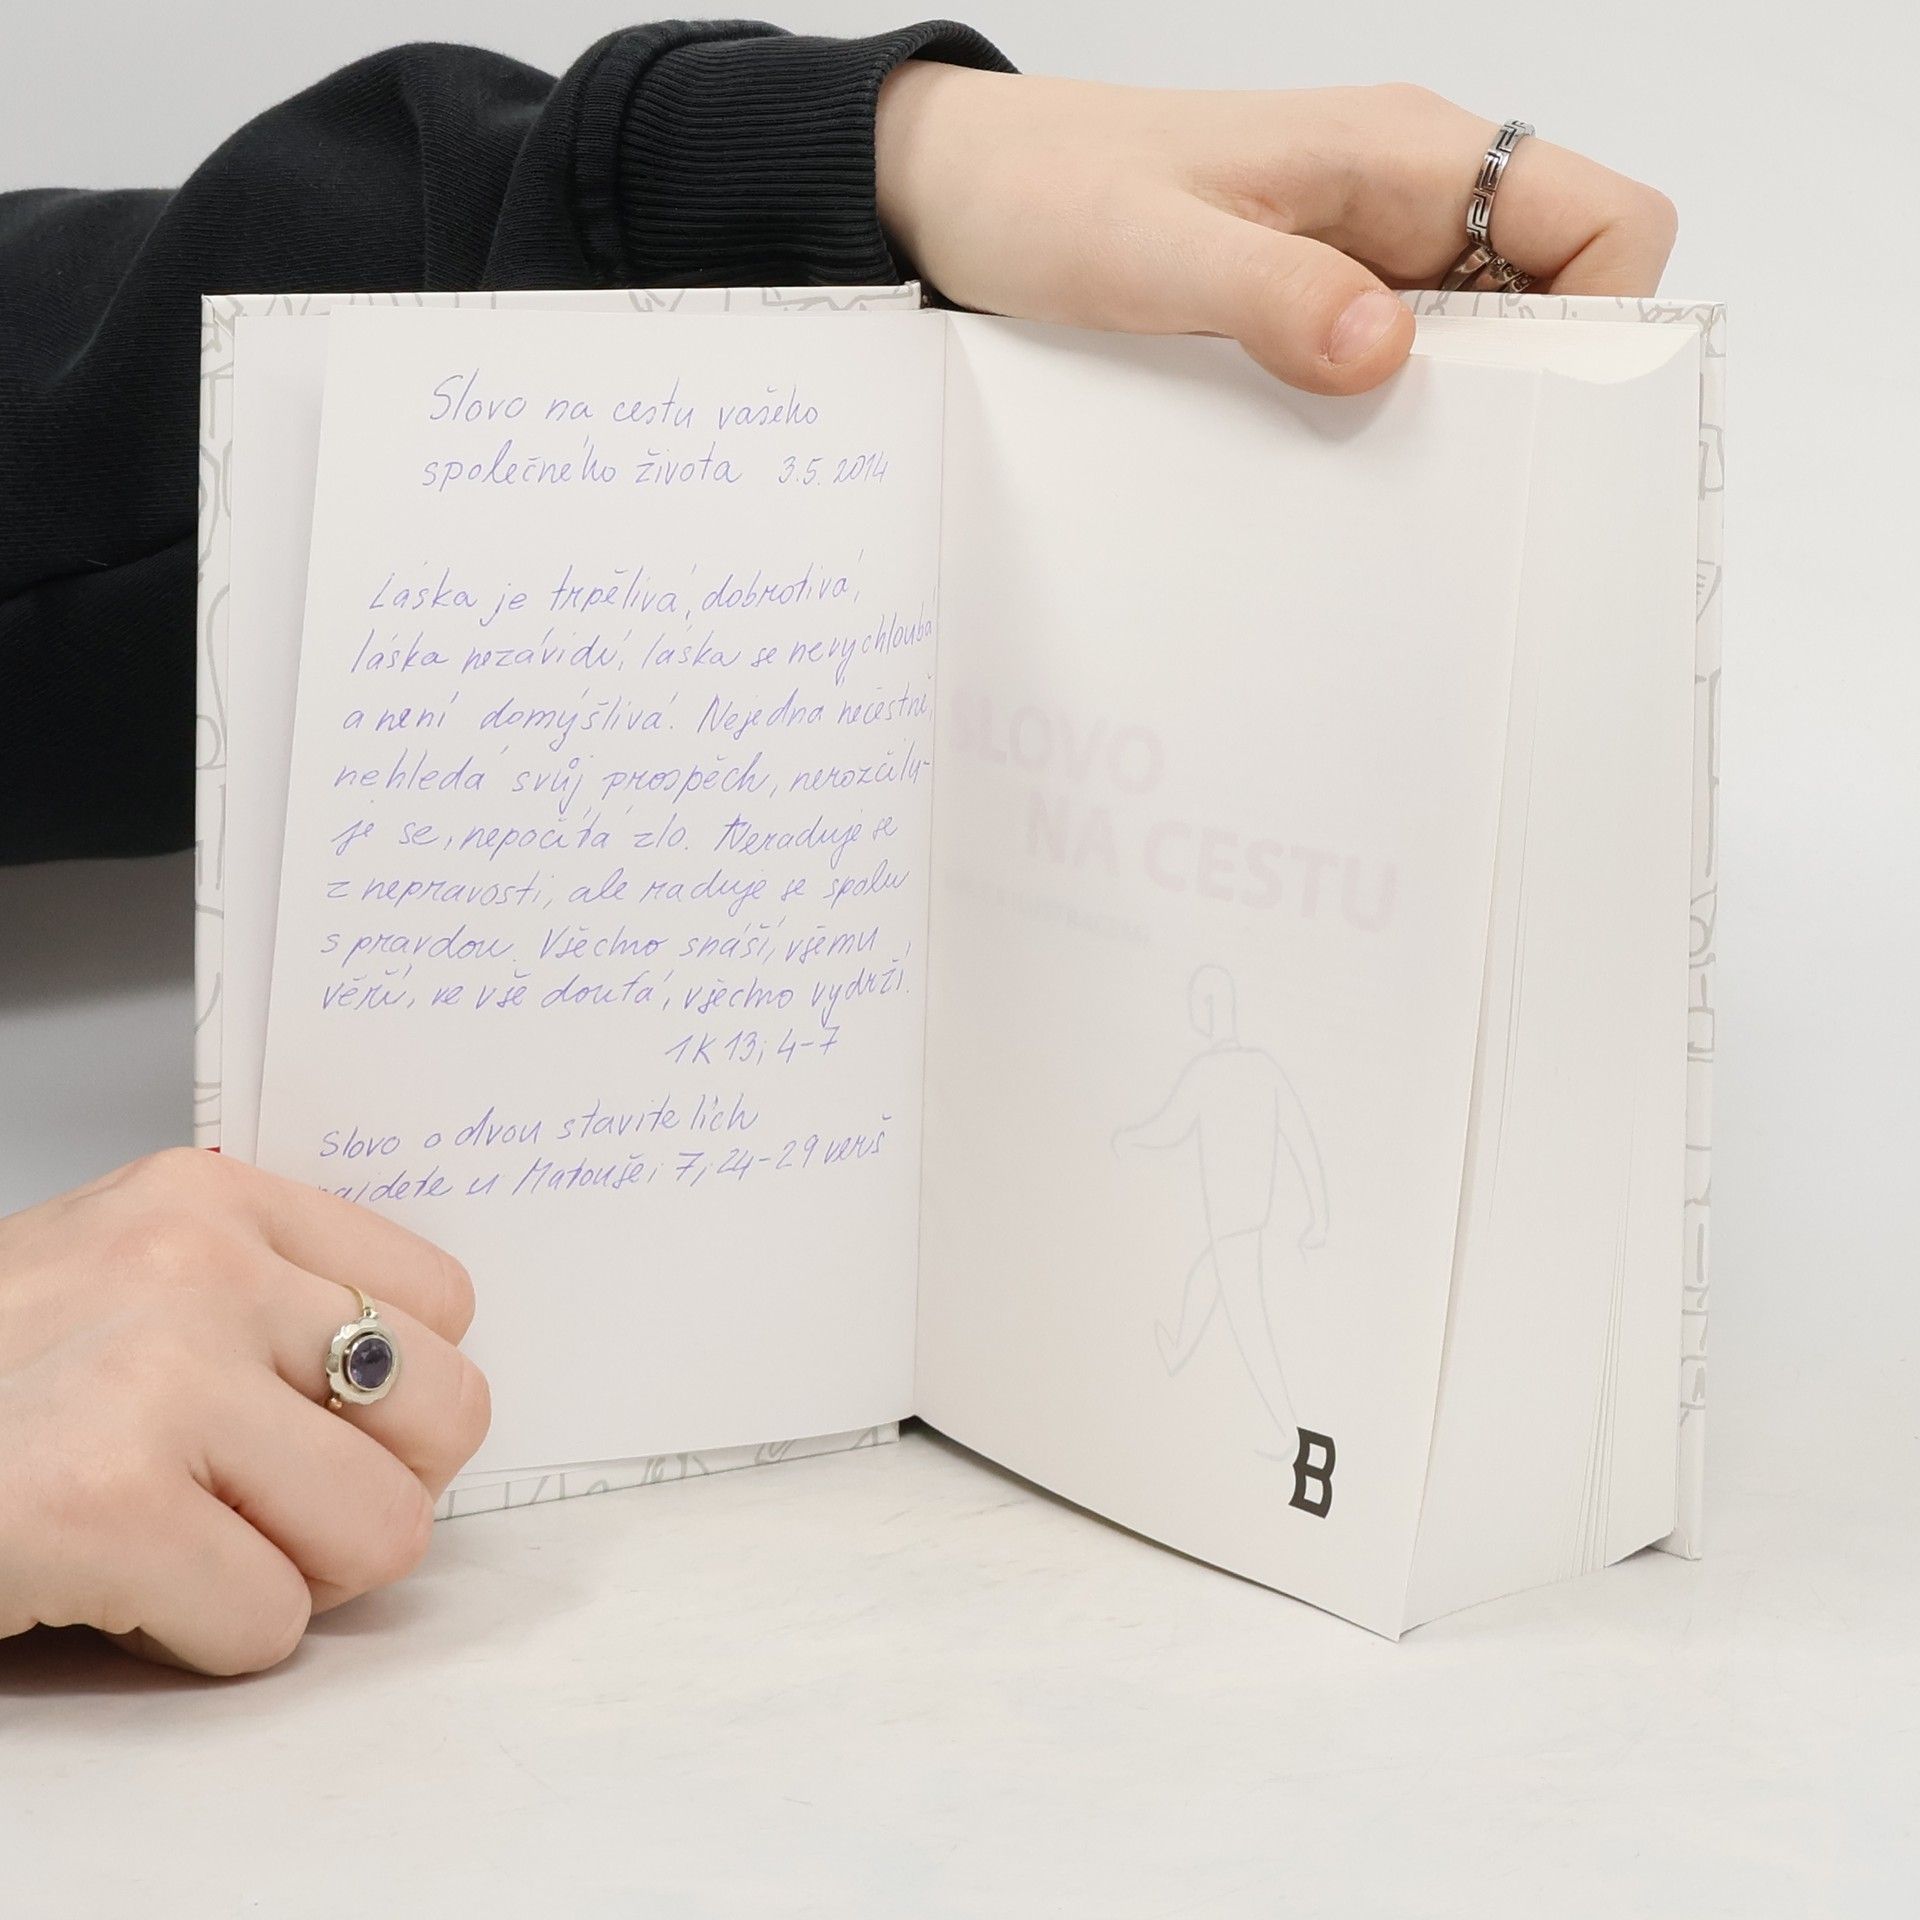 Slovo na cestu vašeho
společného života 3.5.2014
Láska je trpělivá, dobrotivá,
láska nezávidí, láska se nevychloubá
a není domýšlivá. Nejedná nečestně,
nehledá svůj prospěch, nerozčilu-
je se, nepočítá zlo. Neraduje se
z nepravosti, ale raduje se spolu
s pravdou. Všechno snáší, všemu
věří, ve vše doufá, všechno vydrží.
1K 13; 4-7
Slovo o dvou stavitelích
najdete u Matouše; 7; 24-29 verš
SLOVO
NA CESTU
B